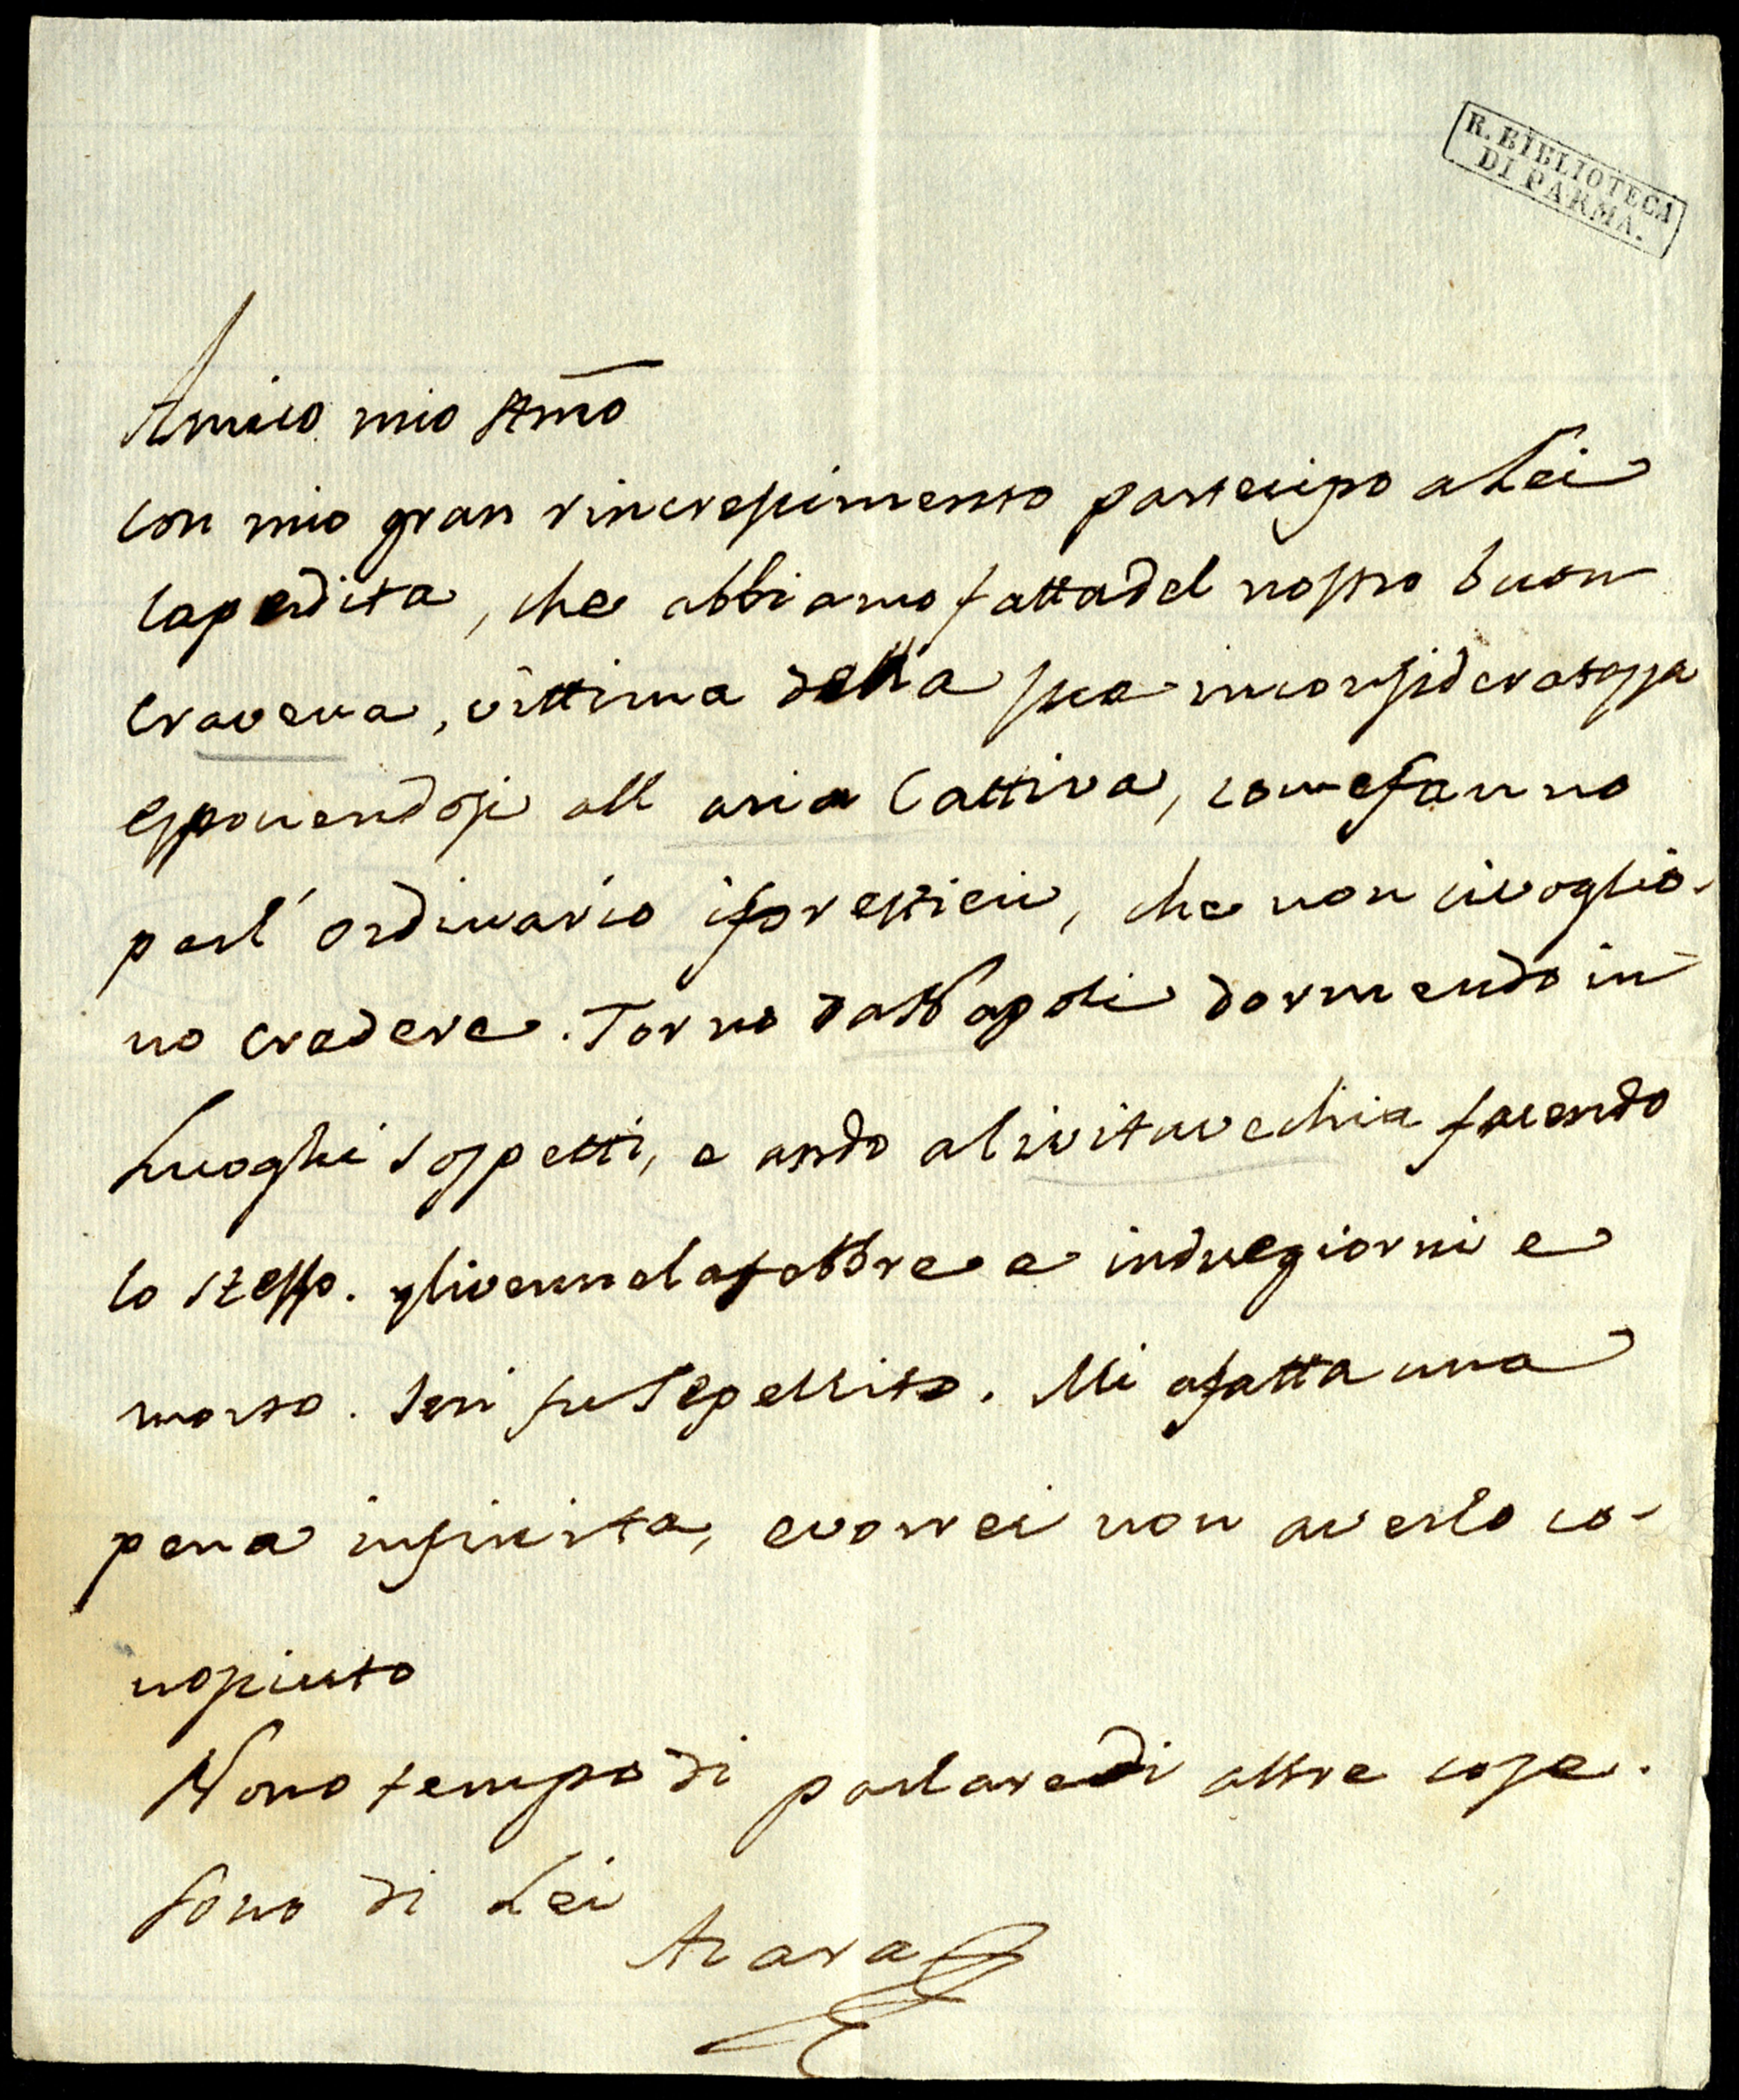 R. BIBLIOTECA
DI PARMA.
Amico mio stmo
con mio gran rincrescimento partecipo a Lei
la perdita, che abbiamo fatta del nostro buon
Cravena, vittima della sua inconsideratezza
esponendosi all aria Cattiva, come fanno
per l' ordinario i forestieri, che non ci voglio-
no credere. Torno da Napoli dormendo in
Luoghi sospetti, e ando a Civitavechia facendo
lo stesso. gli venne la febbre e in due giorni e
morto. Ieri fu Sepellito. Mi a fatta una
pena infinita, e vorrei non averlo co-
nosciuto
Non o tempo di parlare di altre cose.
Sono di Lei
Azara